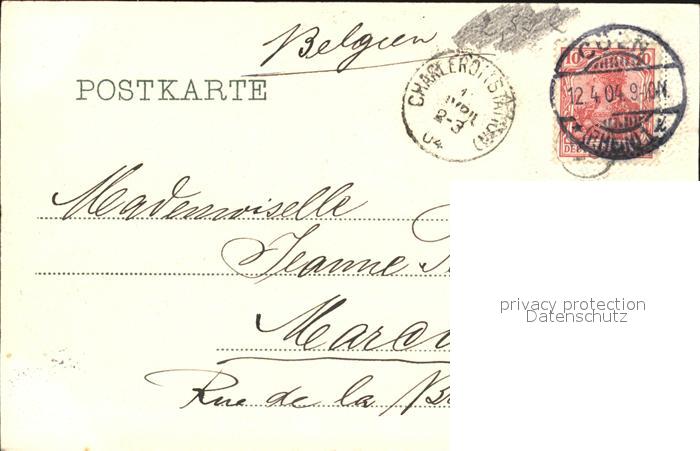 Belgien
POSTKARTE
CHARLEROI (STATION)
AVRIL
2-3
04
CÖLN
10
12.4.04 9-10N.
(RHEIN) 1
Mademoiselle
Jeanne
Rue de la
privacy protection
Datenschutz